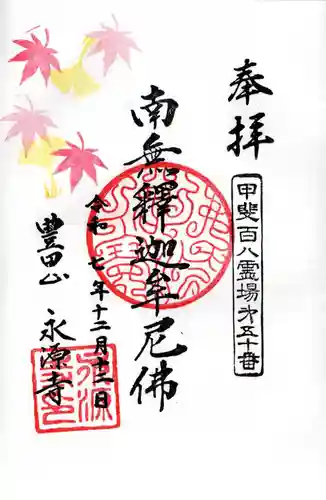 奉拝
甲斐百八霊場才五十番
南無釋迦牟尼佛
令和七年十二月十三日
豊田山 永源寺